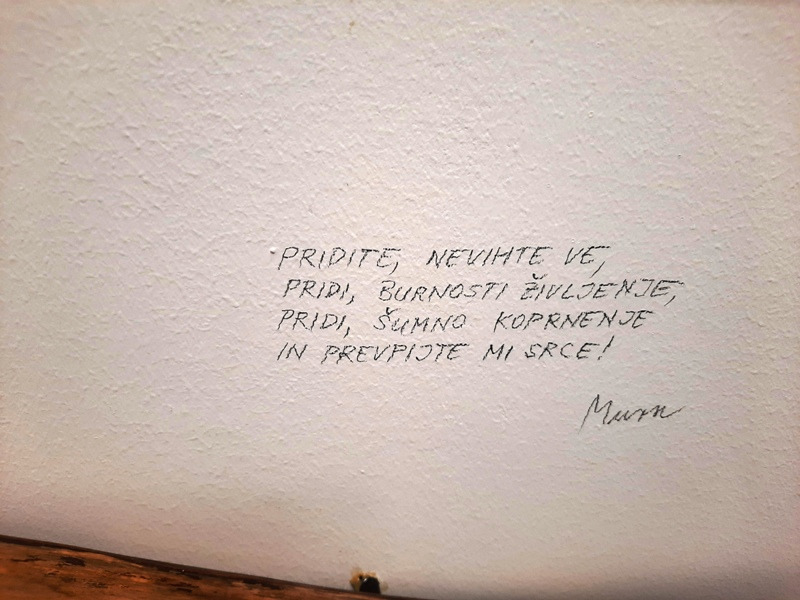 PRIDITE, NEVIHTE VE,
PRIDI, BURNOSTI ŽIVLJENJE,
PRIDI, ŠUMNO KOPRNENJE
IN PREVPIJTE MI SRCE!
Murn